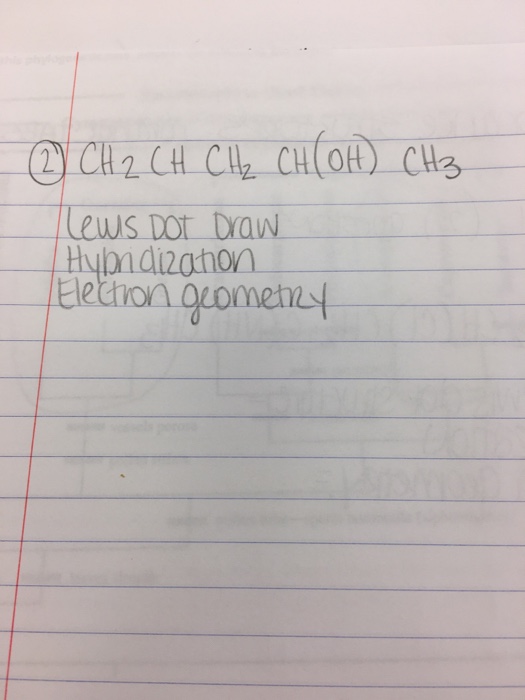 ② CH2 CH CH2 CH(OH) CH3
Lewis DOT Draw
Hybridization
Electron geometry